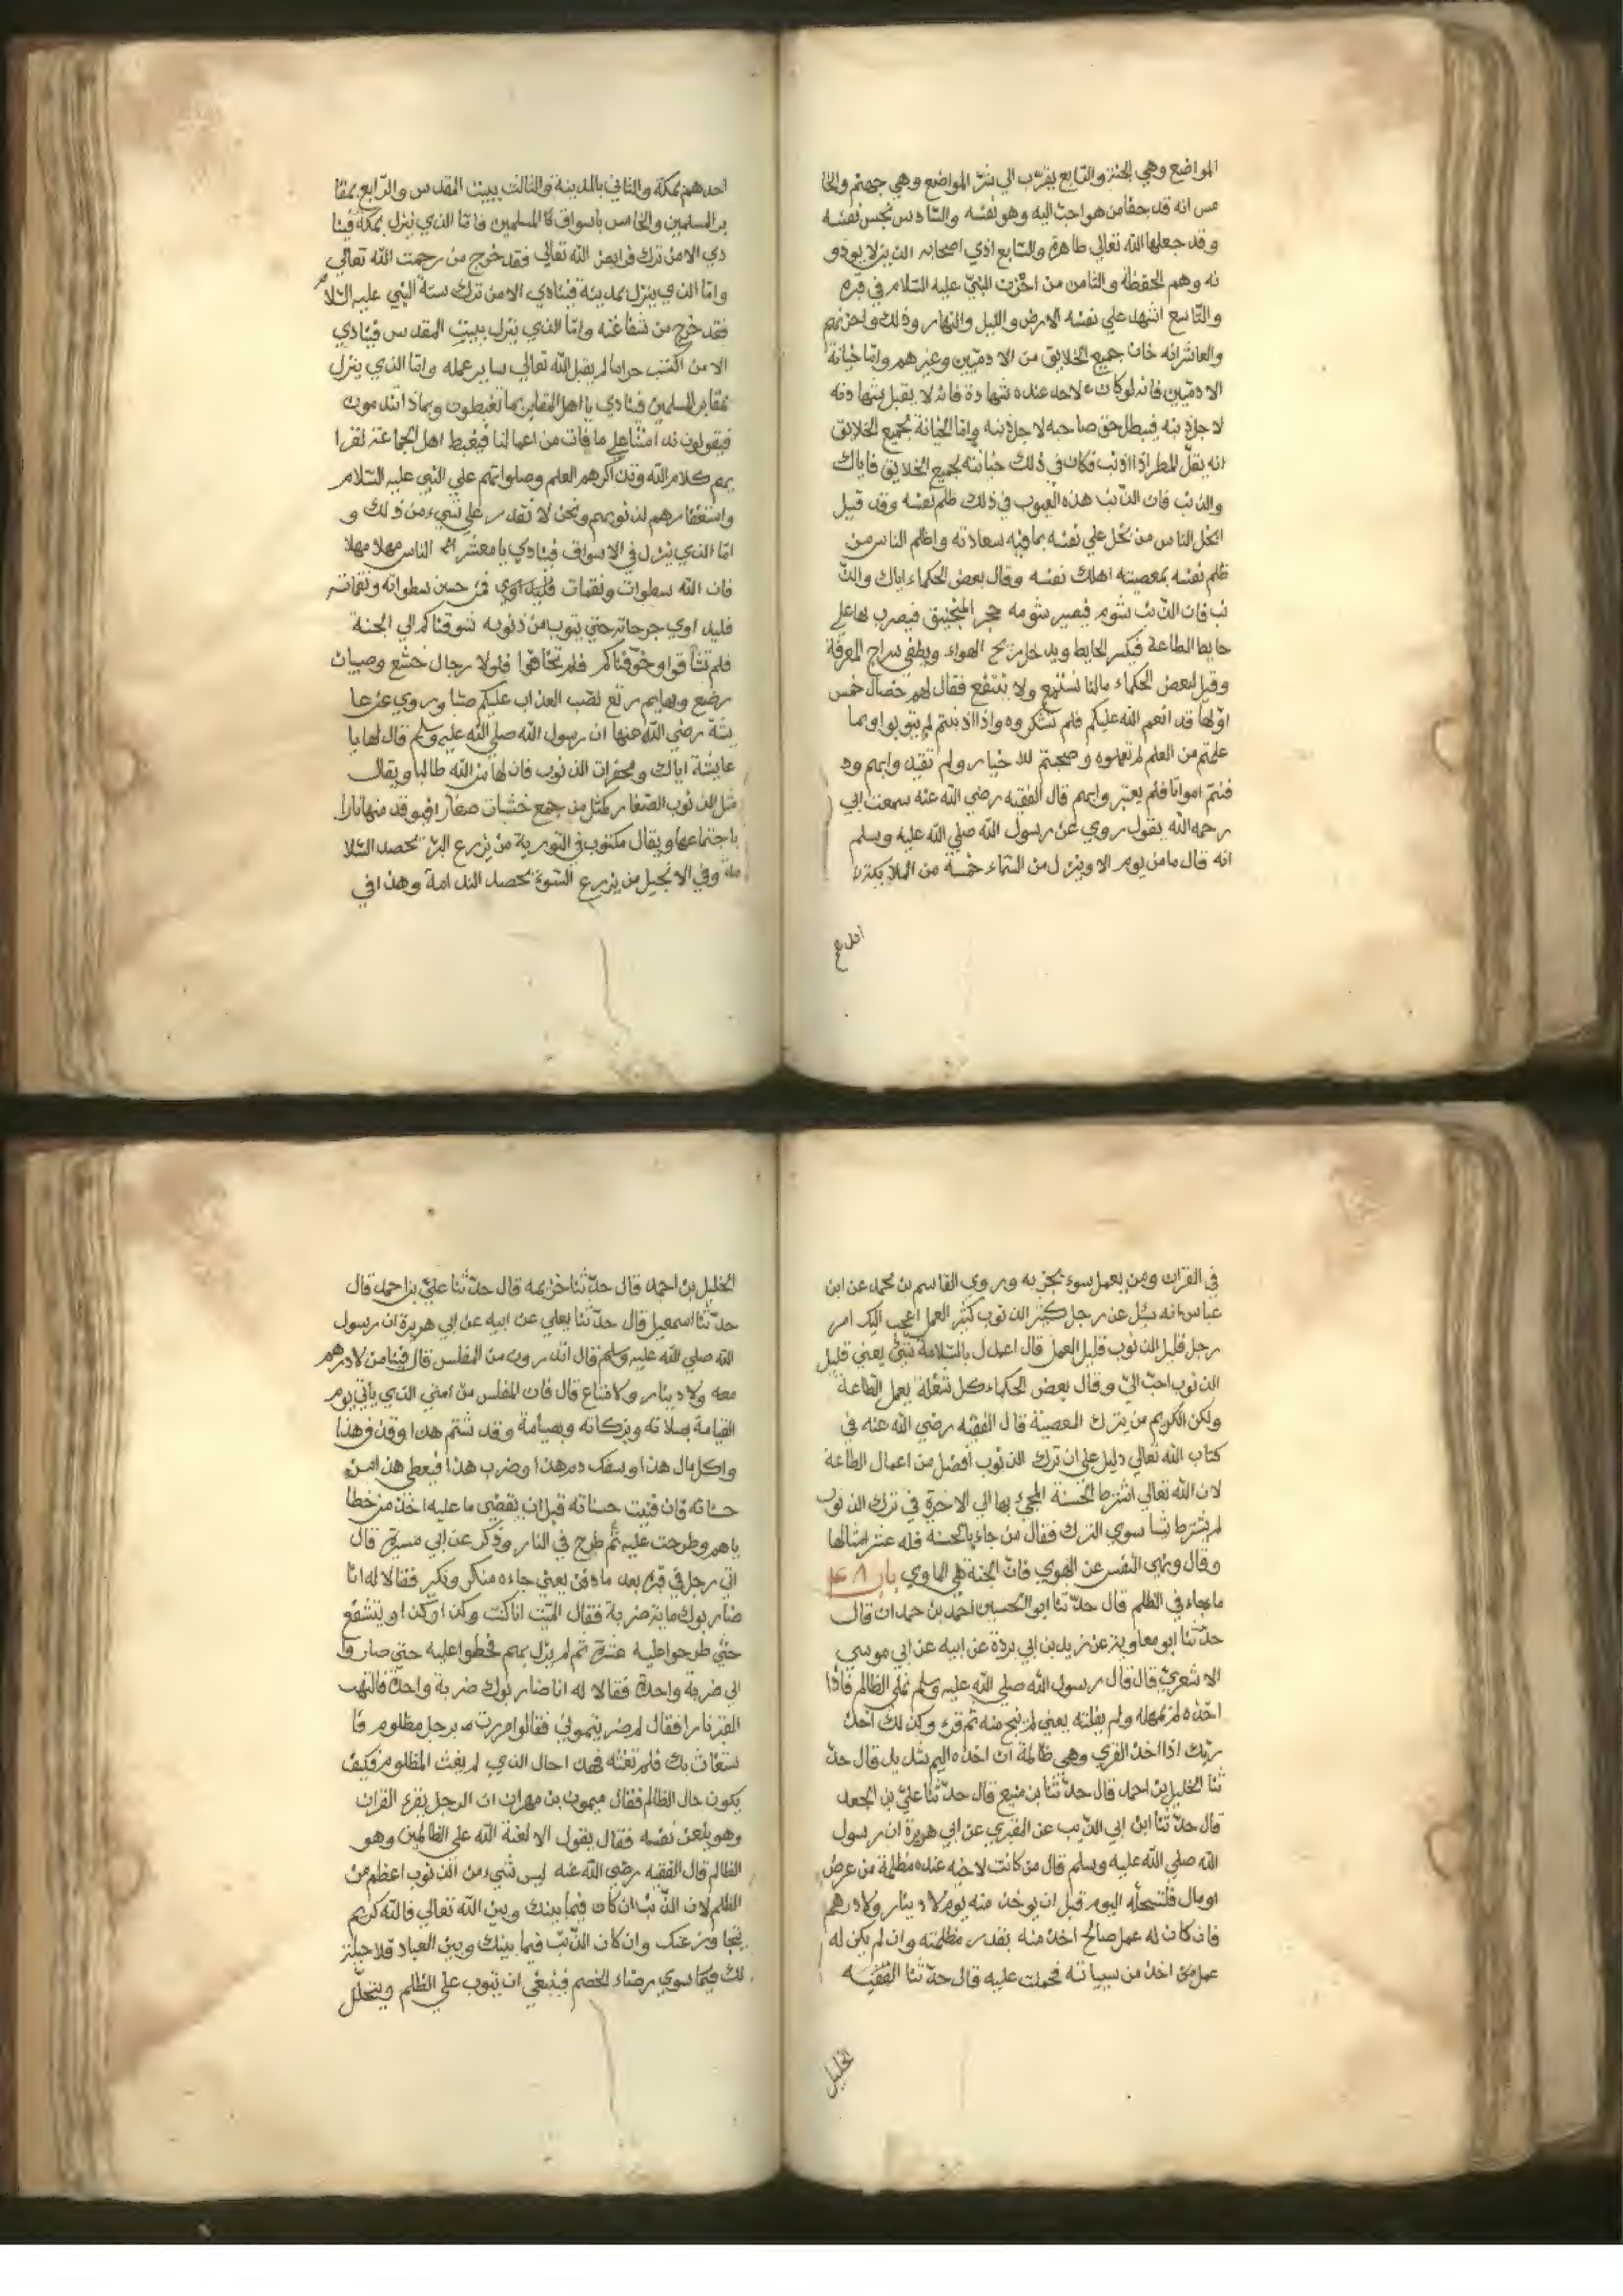 المواضع وهي الجنة والرابع يقرب الي شر المواضع وهي جهنم والخا
مس انه قد جفا من هو احب اليه وهو نفسه والسادس نجس نفسه
وقد جعلها الله تعالي طاهرة والسابع اذي اصحابه الذين لا يوذو
نه وهم الحفظة والثامن من احزن النبي عليه السلام في قبره
والتاسع اشهد علي نفسه الارض والليل والنهار وذلك واحزنهم
والعاشر انه خان جميع الخلايق من الادميين وغيرهم واما خيانة
الادميين فانه لو كانت لاحد عنده شهادة فانه لا يقبل شهادته
لاجل ذنبه فيبطل حق صاحبه لاجل ذنبه واما الخيانة بجميع الخلايق
انه يقل المطر اذا اذنب فكان في ذلك خيانته لجميع الخلايق فاياك
والذنب فان الذنب هذه العيوب في ذلك ظلم نفسه وقد قيل
ابخل الناس من بخل علي نفسه بما فيه سعادته واظلم الناس من
ظلم نفسه بمعصيته اهلك نفسه وقال بعض الحكماء اياك والذ
نب فان الذنب شوم فيصير شومه حجر المنجنيق فيضرب بها علي
حايط الطاعة فيكسر الحايط ويدخل ريح الهواء ويطفي سراج المعرفة
وقيل لبعض الحكماء مالنا نستمع ولا ننتفع فقال لهم خصال خمس
اولها قد انعم الله عليكم فلم تشكروه واذا اذنبتم لم تتوبوا وبما
علمتم من العلم لم تعملوه وصحبتم للاخيار ولم تقيد وابهم ود
فنتم امواتا فلم يعتبر وابهم قال الفقيه رضي الله عنه سمعت ابي
رحمه الله يقول روي عن رسول الله صلي الله عليه وسلم
انه قال ما من يوم الا وينزل من السماء خمسة من الملايكة
احدهم
احدهم بمكة والثاني بالمدينة والثالث ببيت المقدس والرابع بمقا
بر المسلمين والخامس باسواق المسلمين فاما الذي ينزل بمكة فينا
دي الا من ترك فرايض الله تعالي فقد خرج من رحمت الله تعالي
واما الذي ينزل بمدينة فينادي الا من ترك سنة النبي عليه السلام
فقد خرج من شفاعته واما الذي ينزل ببيت المقدس فينادي
الا من اكتسب حراما لم يقبل الله تعالي ساير عمله واما الذي ينزل
بمقابر المسلمين فينادي يا اهل المقابر بما تغبطون وبماذا تندمون
فيقولون ندامتنا علي ما فات من اعمالنا فيغبط اهل الجماعة لقرا
يهم كلام الله وتذاكرهم العلم وصلواتهم علي النبي عليه السلام
واستغفارهم لذنوبهم ونحن لا نقدر علي شيء من ذلك و
اما الذي ينزل في الاسواق فينادي يا معشر الناس مهلا مهلا
فان الله سطوات ونقمات فمن خشي سطواته ونقماته
فليداوي جرحاته حتي يتوب من ذنوبه شوقناكم الي الجنة
فلم تشتاقوا وخوفناكم فلم تخافوا فلولا رجال خشع وصبيان
رضع وبهايم رتع لصب العذاب عليكم صبا وروي عن عا
يشة رضي الله عنها ان رسول الله صلي الله عليه وسلم قال لها يا
عايشة اياك ومحقرات الذنوب فان لها من الله طالبا ويقال
مثل الذنوب الصغار كمثل من جمع خشبات صغار افيوقد منها نارا
باجتماعها ويقال مكتوب في التورية من يزرع البر يحصد السلا
مة وفي الانجيل من يزرع السوء يحصد الندامة وهذا في
في القرات ومن يعمل سوء يجز به وروي القاسم بن محمد عن ابن
عباس انه سئل عن رجل كثير الذنوب كثير العمل اعجب اليك امر
رجل قليل الذنوب قليل العمل قال اعدل بالسلامة شيئ يعني قليل
الذنوب احب الي وقال بعض الحكماء كل يعمل الطاعة
ولكن الكريم من يترك المعصية قال الفقيه رضي الله عنه في
كتاب الله تعالي دليل علي ان ترك الذنوب افضل من اعمال الطاعة
لان الله تعالي اشترط الحسنة المجيء بها الي الاخرة في ترك الذنوب
لم يشترط شيا سوي الترك فقال من جاء بالحسنة فله عشر امثالها
وقال ونهي النفس عن الهوي فان الجنة هي الماوي باب ٤٨
ما جاء في الظلم قال حدثنا ابو الحسين احمد بن حمدان قال
حدثنا ابو معاوية عن يزيد بن ابي بردة عن ابيه عن ابي موسي
الاشعري قال قال رسول الله صلي الله عليه وسلم تملي الظالم فاذا
اخذه لم يمهله ولم يفلته يعني لم ينج منه ثم قرء وكذلك اخذ
ربك اذا اخذ القري وهي ظالمة ان اخذه اليم شديد قال حد
ثنا الخليل بن احمد قال حدثنا بن منيع قال حدثنا علي بن الجعد
قال حدثنا ابن ابي الذيب عن المقبري عن ابي هريرة ان رسول
الله صلي الله عليه وسلم قال من كانت لاخيه عنده مظلمة من عرض
او مال فلتحلله اليوم قبل ان يوخذ منه يوم لا دينار ولا درهم
فان كان له عمل صالح اخذ منه بقدر مظلمته وان لم يكن له
عمل اخذ من سيياته فحملت عليه قال حدثنا الفقيه
الخليل
الخليل بن احمد قال حدثنا خزيمه قال حدثنا علي بن احمد قال
حدثنا اسمعيل قال حدثنا يعلي عن ابيه عن ابي هريرة ان رسول
الله صلي الله عليه وسلم قال اتدرون من المفلس قال فينا من لا درهم
معه ولا دينار ولا متاع قال فان المفلس من امتي الذي ياتي يوم
القيامة بصلاته وبزكاته وبصيامه وقد شتم هذا وقذف هذا
واكل مال هذا وسفك دم هذا وضرب هذا فيعطي هذا من
حسناته فان فنيت حسناته قبل ان يقضي ما عليه اخذ من خطا
ياهم وطرحت عليه ثم طرح في النار وذكر عن ابي ميسرة قال
اتي رجل في قبره بعد ما دفن يعني جاءه منكر ونكير فقالا له انا
ضاربوك ماية ضربة فقال الميت انا كنت وكذا وكذا ويتشفع
حتي طرحوا عليه عشرة ثم لم يزل بهم فحطوا عليه حتي صاروا
الي ضربة واحدة فقالا له انا ضاربوك ضربة واحدة فالتهب
القبر نارا فقال لم ضربتموني فقالوا مررت برجل مظلوم فا
ستغاث بك فلم تغثه فهذا حال الذي لم يغث المظلوم فكيف
يكون حال الظالم فقال ميمون بن مهران ان الرجل يقرء القران
وهو يلعن نفسه فقال يقول الا لعنة الله علي الظالمين وهو
الظالم قال الفقيه رضي الله عنه ليس شيء من الذنوب اعظم من
الظلم لان الذنب ان كان فيما بينك وبين الله تعالي فالله كريم
يتجاوز عنك وان كان الذنب فيما بينك وبين العباد فلا حيلة
لك فيما سوي رضاء الخصم فينبغي ان يتوب علي الظلم ويتحلل